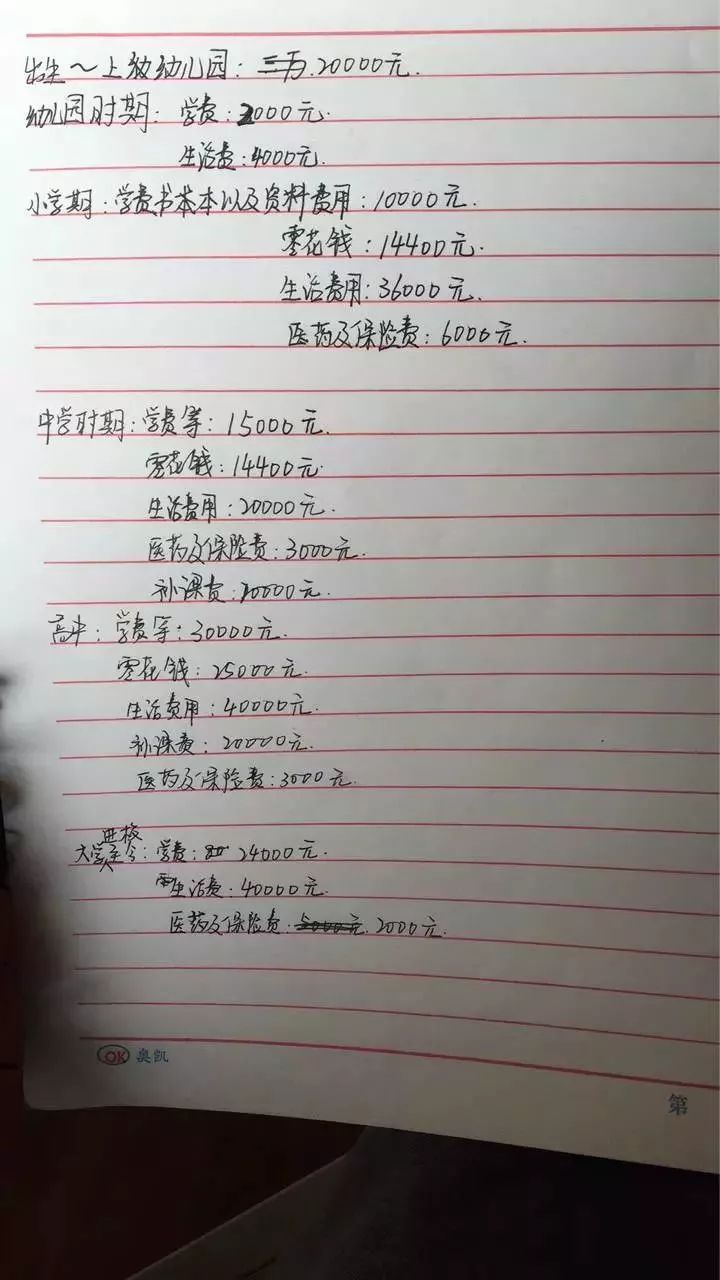 出生～上幼儿园：三万.20000元.
幼儿园时期：学费：2000元.
生活费：4000元.
小学期：学费书本本以及资料费用：10000元.
零花钱：14400元.
生活费用：36000元.
医药及保险费：6000元.
中学时期：学费等：15000元.
零花钱：14400元.
生活费用：20000元.
医药及保险费：3000元.
补课费：20000元.
高中：学费等：30000元.
零花钱：25000元.
生活费用：40000元.
补课费：20000元.
医药及保险费：3000元.
进校
大学至今：学费：24000元.
生活费：40000元.
医药及保险费：2000元.
OK 奥凯
第